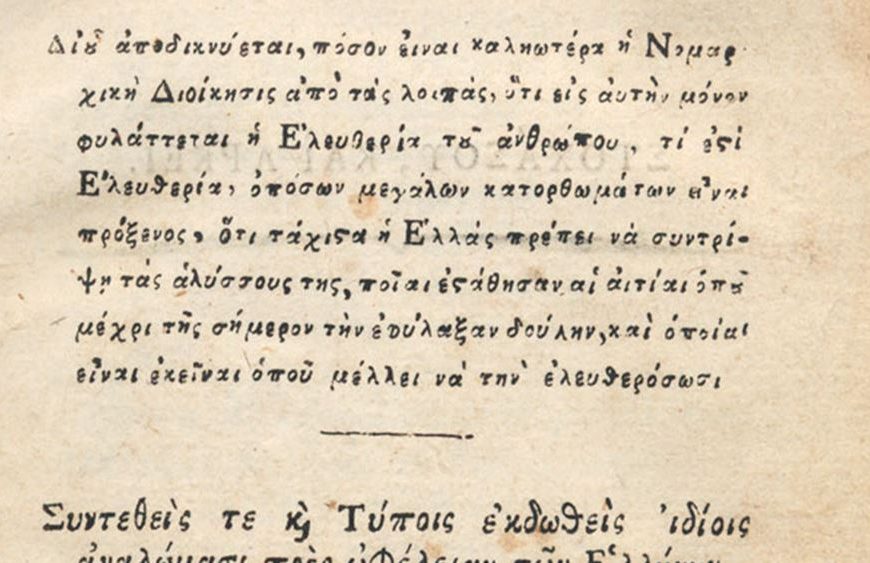 Δι' οὗ ἀποδικνύεται, πόσον εἶναι καλητωτέρα ἡ Νομαρ-
χικὴ Διοίκησις ἀπὸ τὰς λοιπὰς, ὅτι εἰς ἀυτὴν μόνον
φυλάττεται ἡ Ἐλευθερία τοῦ ἀνθρώπου, τί ἐστὶ
Ἐλευθερία, ὁπόσων μεγάλων κατορθωμάτων εἶναι
πρόξενος, ὅτι τάχιστα ἡ Ἑλλὰς πρέπει νὰ συντρί-
ψη τὰς ἁλύσσους της, ποῖαι ἐστάθησαν αἱ ἀιτίαι ὁποῦ
μέχρι τῆς σήμερον τὴν ἐφύλαξαν δούλην, καὶ ὁποῖαι
εἶναι ἐκεῖναι ὁποῦ μέλλει νὰ τὴν ἐλευθερόσωσι
Συντεθείς τε καὶ Τύποις ἐκδωθεὶς ἰδίοις
ἀναλώμασι πρὸς ὠφέλειαν τῶν Ἑλλήνων